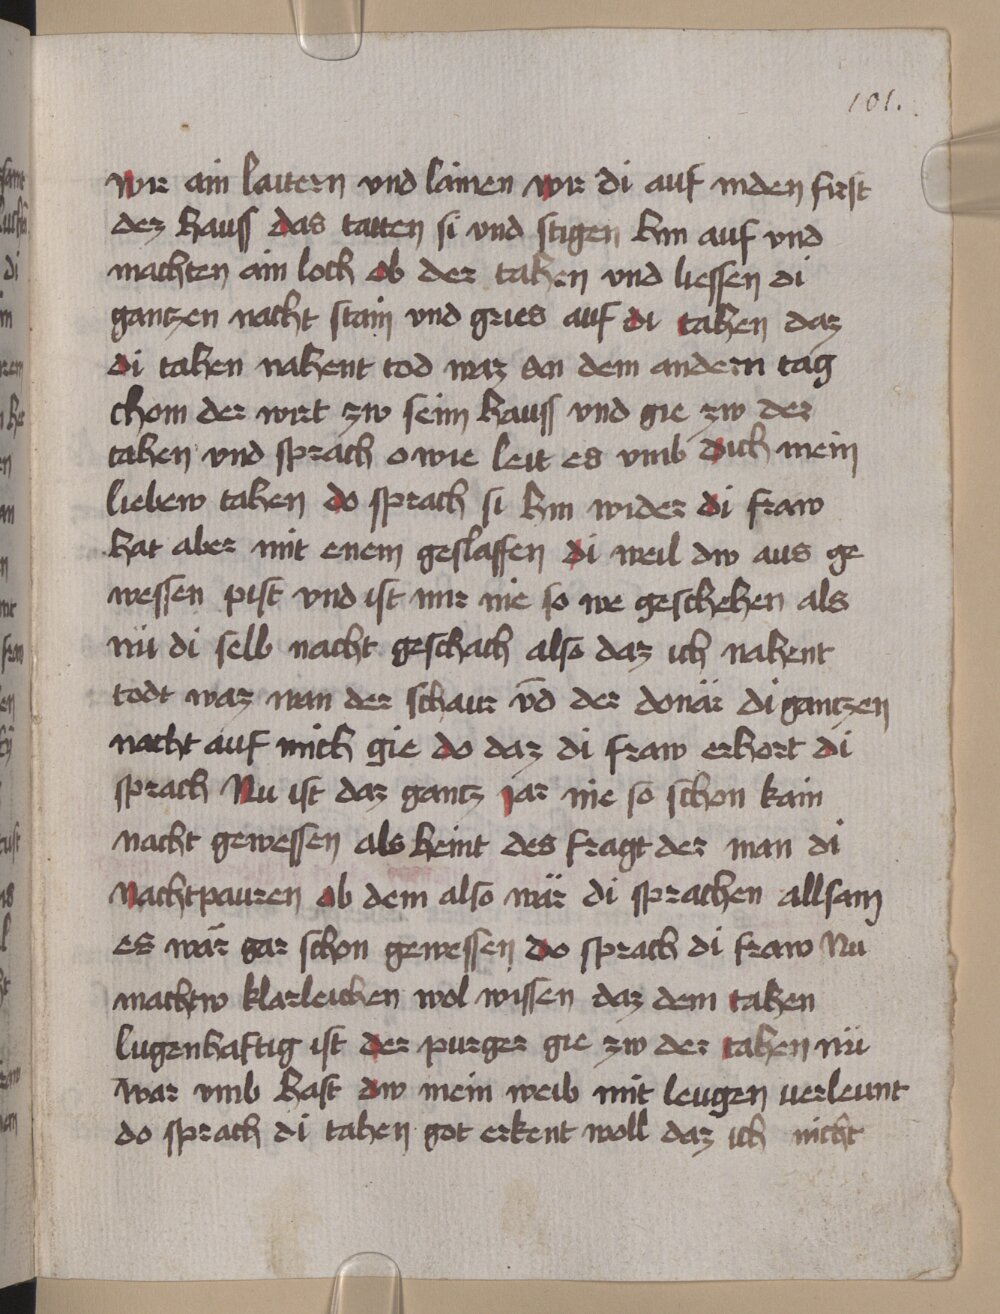 101.
wir ain laittern vnd lainen wir di auf inden first
dez hauss das tatten si vnd stigen hin auf vnd
machten ain loch ob der tahen vnd liessen di
gantzen nacht stain vnd gries auf di tahen daz
di tahen nahent tod waz an dem andern tag
chom der wirt zw seim hauss vnd gie zw der
tahen vnd sprach o wie leit es vmb dich mein
liebew tahen do sprach si hin wider di fraw
hat aber mit enem geslaffen di weil dw aus ge
wessen pist vnd ist mir nie so we geschehen als
nü di selb nacht geschach also daz ich nahent
todt waz wan der schaur vn̄d der donär di gantzen
nacht auf mich gie do daz di fraw erhort di
sprach Nu ist daz gantz jar nie so schon kain
nacht gewessen als heint des fragt der man di
Nachtpauren ob dem also wär di sprachen allsam
es wär gar schon gewessen do sprach di fraw Nu
machtw klarleichen wol wissen daz dem tahen
lugenhaftig ist der purger gie zw der tahen nü
war vmb hast dw mein weib mit leugen verleunt
do sprach di tahen got erkent woll daz ich nicht